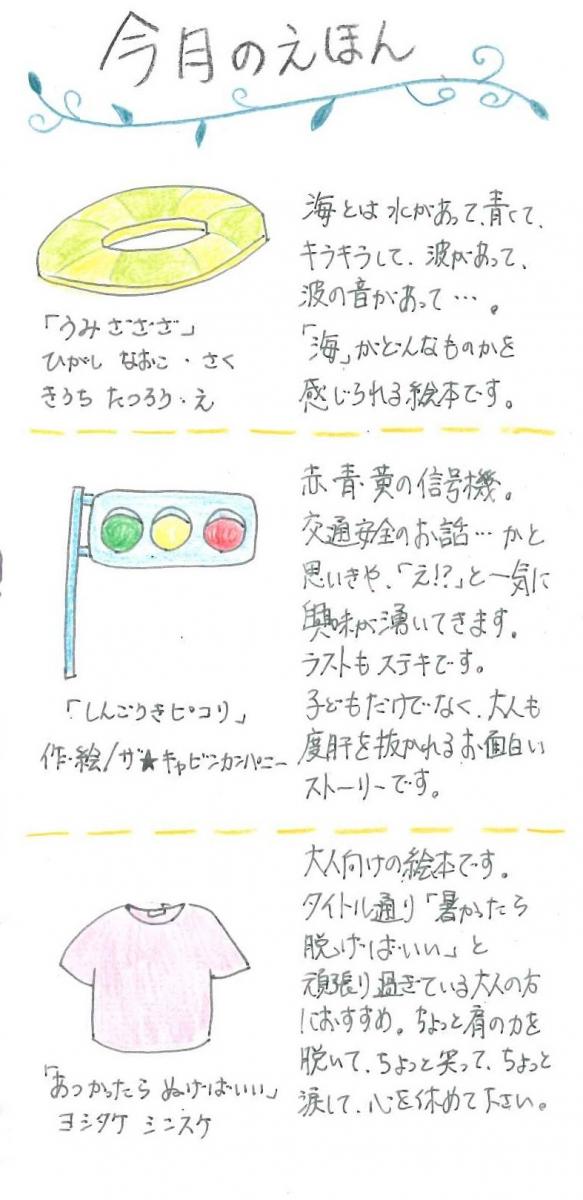 今月のえほん
「うみざざざ」
ひがし なおこ・さく
きうち たつろう・え
海とは水があって、青くて、
キラキラして、波があって、
波の音があって…。
「海」がどんなものかを
感じられる絵本です。
「しんごうきピコリ」
作・絵/ザ★キャビンカンパニー
赤・青・黄の信号機。
交通安全のお話…かと
思いきや、「え!?」と一気に
興味が湧いてきます。
ラストもステキです。
子どもだけでなく、大人も
度肝を抜かれるお面白い
ストーリーです。
「あつかったら ぬげばいい」
ヨシタケ シンスケ
大人向けの絵本です。
タイトル通り「暑かったら
脱げばいい」と
頑張り過ぎている大人の方
におすすめ。ちょっと肩の力を
脱いて、ちょっと笑って、ちょっと
涙して、心を休めて下さい。